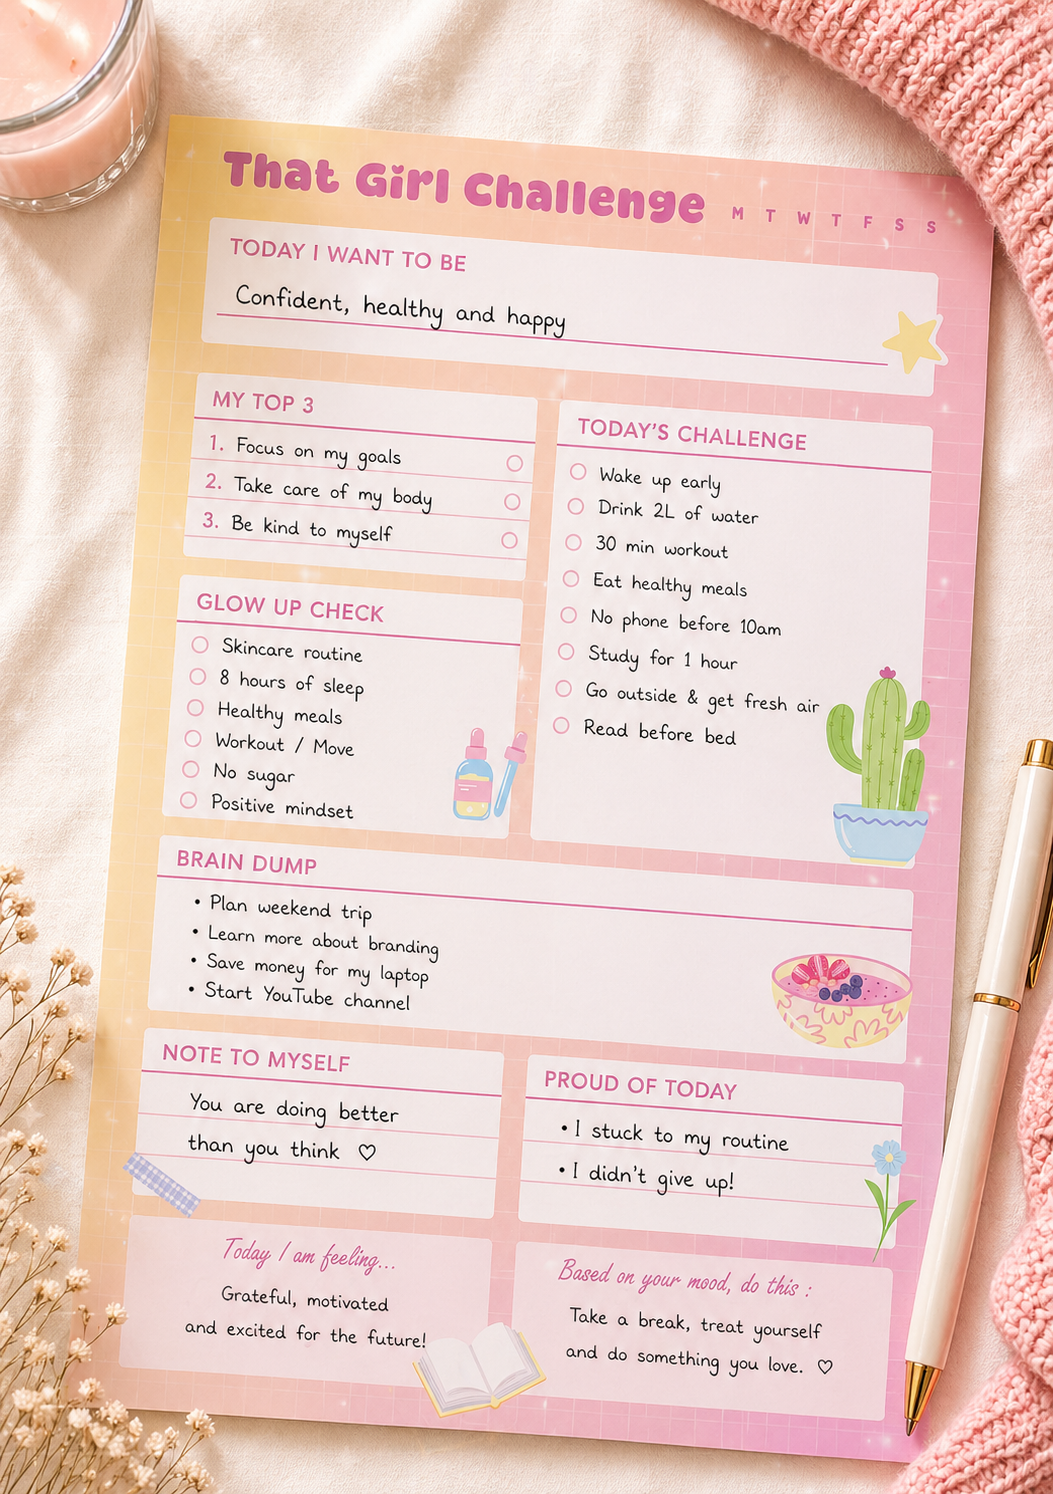 That Girl Challenge M T W T F S S
TODAY I WANT TO BE
Confident, healthy and happy
MY TOP 3
1. Focus on my goals
2. Take care of my body
3. Be kind to myself
TODAY'S CHALLENGE
Wake up early
Drink 2L of water
30 min workout
Eat healthy meals
No phone before 10am
Study for 1 hour
Go outside & get fresh air
Read before bed
GLOW UP CHECK
Skincare routine
8 hours of sleep
Healthy meals
Workout / Move
No sugar
Positive mindset
BRAIN DUMP
• Plan weekend trip
• Learn more about branding
• Save money for my laptop
• Start YouTube channel
NOTE TO MYSELF
You are doing better
than you think ♡
PROUD OF TODAY
• I stuck to my routine
• I didn't give up!
Today I am feeling...
Grateful, motivated
and excited for the future!
Based on your mood, do this :
Take a break, treat yourself
and do something you love. ♡